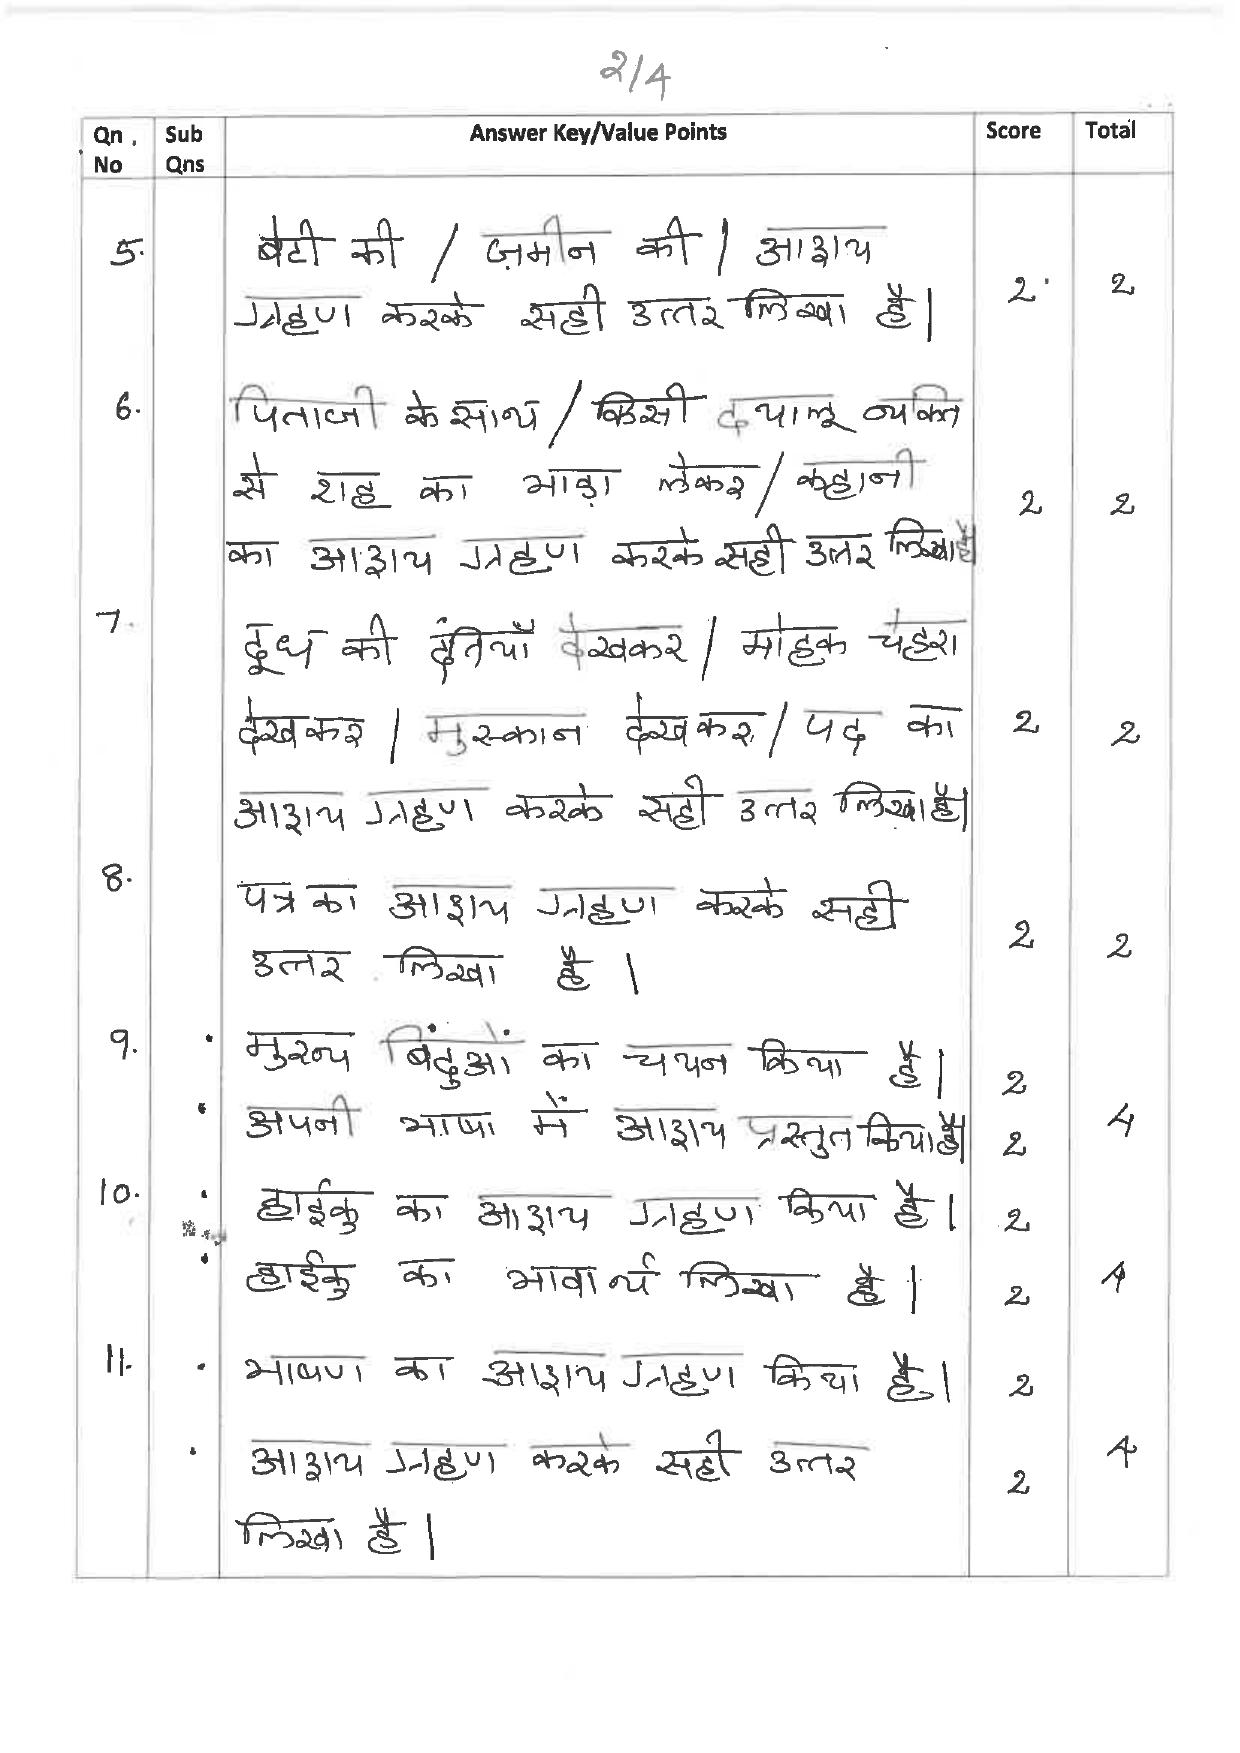 2/4
Qn. No Sub Qns Answer Key/Value Points Score Total
5. बेटी की / ज़मीन की / आशय
ग्रहण करके सही उत्तर लिखा है। 2 2
6. पिताजी के साथ / किसी दयालू व्यक्ति
से राह का भाड़ा लेकर / कहानी
का आशय ग्रहण करके सही उत्तर लिखा है 2 2
7. दूध की दंतियाँ देखकर / मोहक चेहरा
देखकर / मुस्कान देखकर / पद का
आशय ग्रहण करके सही उत्तर लिखा है। 2 2
8. पत्र का आशय ग्रहण करके सही
उत्तर लिखा है। 2 2
9. • मुख्य बिंदुओं का चयन किया है। 2
• अपनी भाषा में आशय प्रस्तुत किया है। 2 4
10. • हाईकु का आशय ग्रहण किया है। 2
• हाईकु का भावार्थ लिखा है। 2 4
11. • भाषण का आशय ग्रहण किया है। 2
• आशय ग्रहण करके सही उत्तर
लिखा है। 2 4